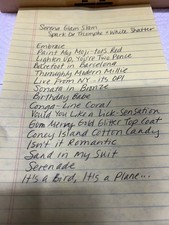 Serene Green Stain
Spark De Triomphe + White Shatter
Embrace
Paint My Moji-tos Red
Lighten Up, You're Two Pence
Barefoot in Barcelona
Thoroughly Modern Millie
Live From NY - It's OPI
Sonata in Bronze
Birthday Babe
Conga-Line Coral
Would You Like a Lick-Sensation
Gem Mercy Gold Glitter Top Coat
Coney Island Cotton Candy
Isn't it Romantic
Sand in My Suit
Serenade
It's a Bird, It's a Plane...